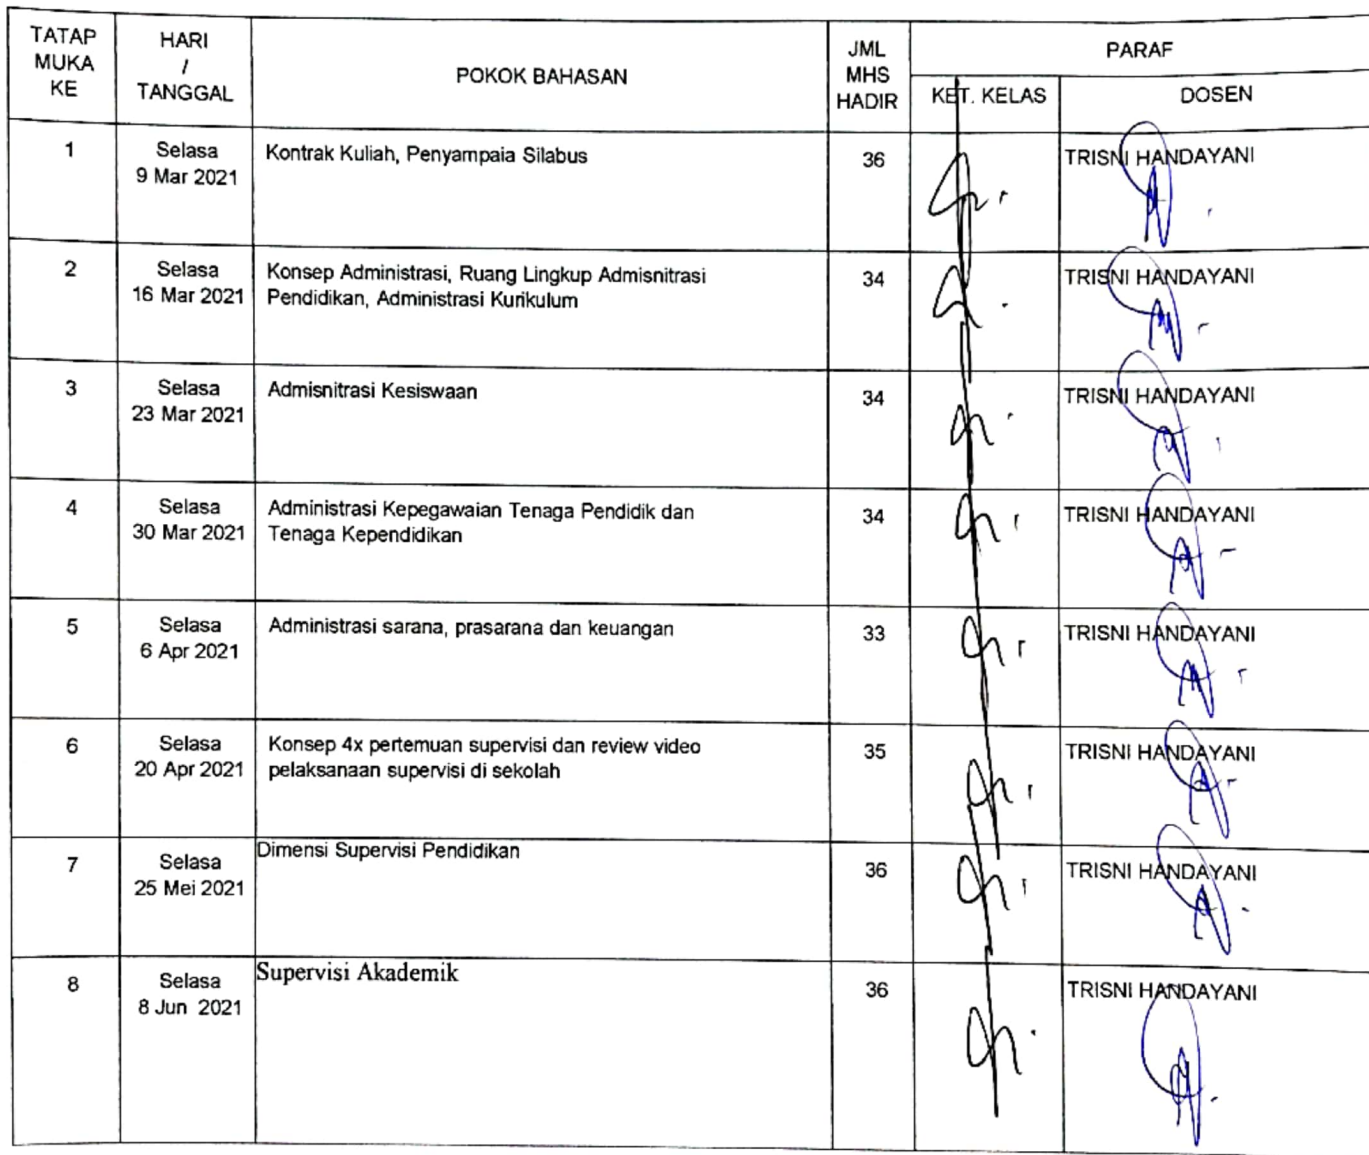 TATAP
MUKA
KE
HARI
/
TANGGAL
POKOK BAHASAN
JML
MHS
HADIR
PARAF
KET. KELAS
DOSEN
1
Selasa
9 Mar 2021
Kontrak Kuliah, Penyampaia Silabus
36
TRISNI HANDAYANI
2
Selasa
16 Mar 2021
Konsep Administrasi, Ruang Lingkup Admisnitrasi
Pendidikan, Administrasi Kurikulum
34
TRISNI HANDAYANI
3
Selasa
23 Mar 2021
Admisnitrasi Kesiswaan
34
TRISNI HANDAYANI
4
Selasa
30 Mar 2021
Administrasi Kepegawaian Tenaga Pendidik dan
Tenaga Kependidikan
34
TRISNI HANDAYANI
5
Selasa
6 Apr 2021
Administrasi sarana, prasarana dan keuangan
33
TRISNI HANDAYANI
6
Selasa
20 Apr 2021
Konsep 4x pertemuan supervisi dan review video
pelaksanaan supervisi di sekolah
35
TRISNI HANDAYANI
7
Selasa
25 Mei 2021
Dimensi Supervisi Pendidikan
36
TRISNI HANDAYANI
8
Selasa
8 Jun 2021
Supervisi Akademik
36
TRISNI HANDAYANI